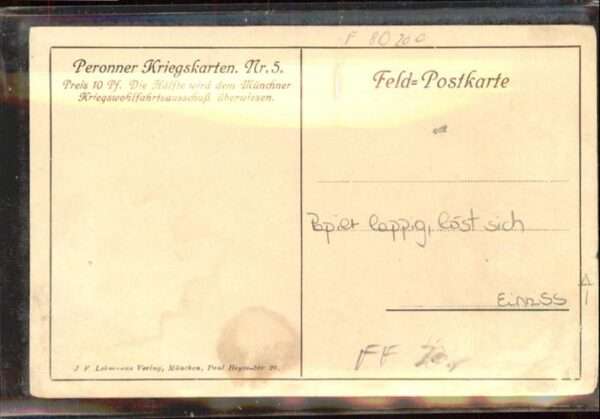 F 80200
Peronner Kriegskarten. Nr. 5.
Preis 10 Pf. Die Hälfte wird dem Münchner
Kriegswohlfahrtsausschuß überwiesen.
Feld=Postkarte
Papier lappig, löst sich
FF
J F Lehmanns Verlag, München, Paul Heysestr 26.